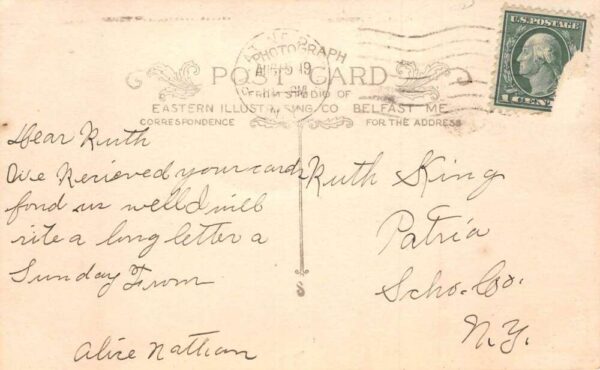 PHOTOGRAPH
POST CARD
FROM STUDIO OF
EASTERN ILLUSTRATING CO BELFAST ME.
CORRESPONDENCE
FOR THE ADDRESS
U.S. POSTAGE
Dear Ruth
We Recieved your card
fond us well I will
rite a long letter a
Sunday From
Alice Nathan
Ruth King
Patria
Scho. Co.
N.Y.
S